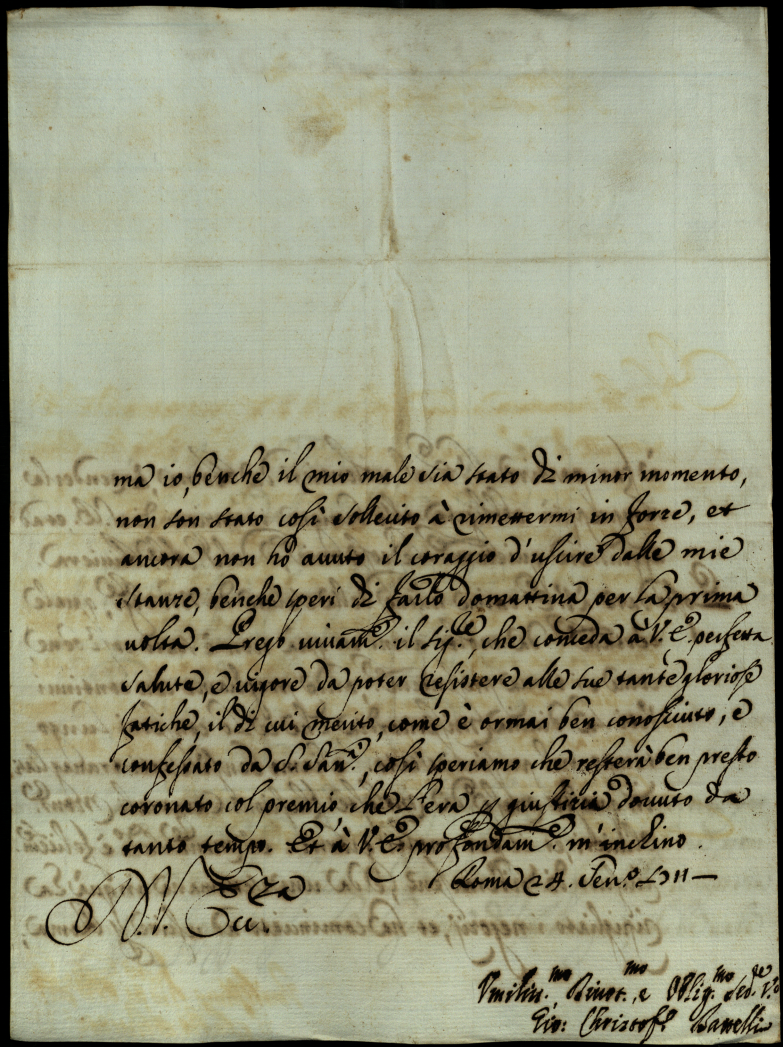 ma io, benche il mio male sia stato di minor momento,
non son stato così sollecito à rimettermi in forze, et
ancora non hò auuto il coraggio d'uscire dalle mie
stanze, benche speri di farlo domattina per la prima
uolta. Prego uiuam.e il Sig.re, che conceda à V. E. perfetta
salute, e uigore da poter resistere alle sue tante gloriose
fatiche, il di cui merito, come è ormai ben conosciuto, e
confessato da S. San.tà, così speriamo che resterà ben presto
coronato col premio, che l'era p giustizia douuto da
tanto tempo. Et à V. E. profondam.e m'inchino.
Roma 24. Gen.o 1711
V. Ecc.za
Vmiliss.mo Diuot.mo, e Oblig.mo Sed.re V.o
Gio: Christof.o Battelli